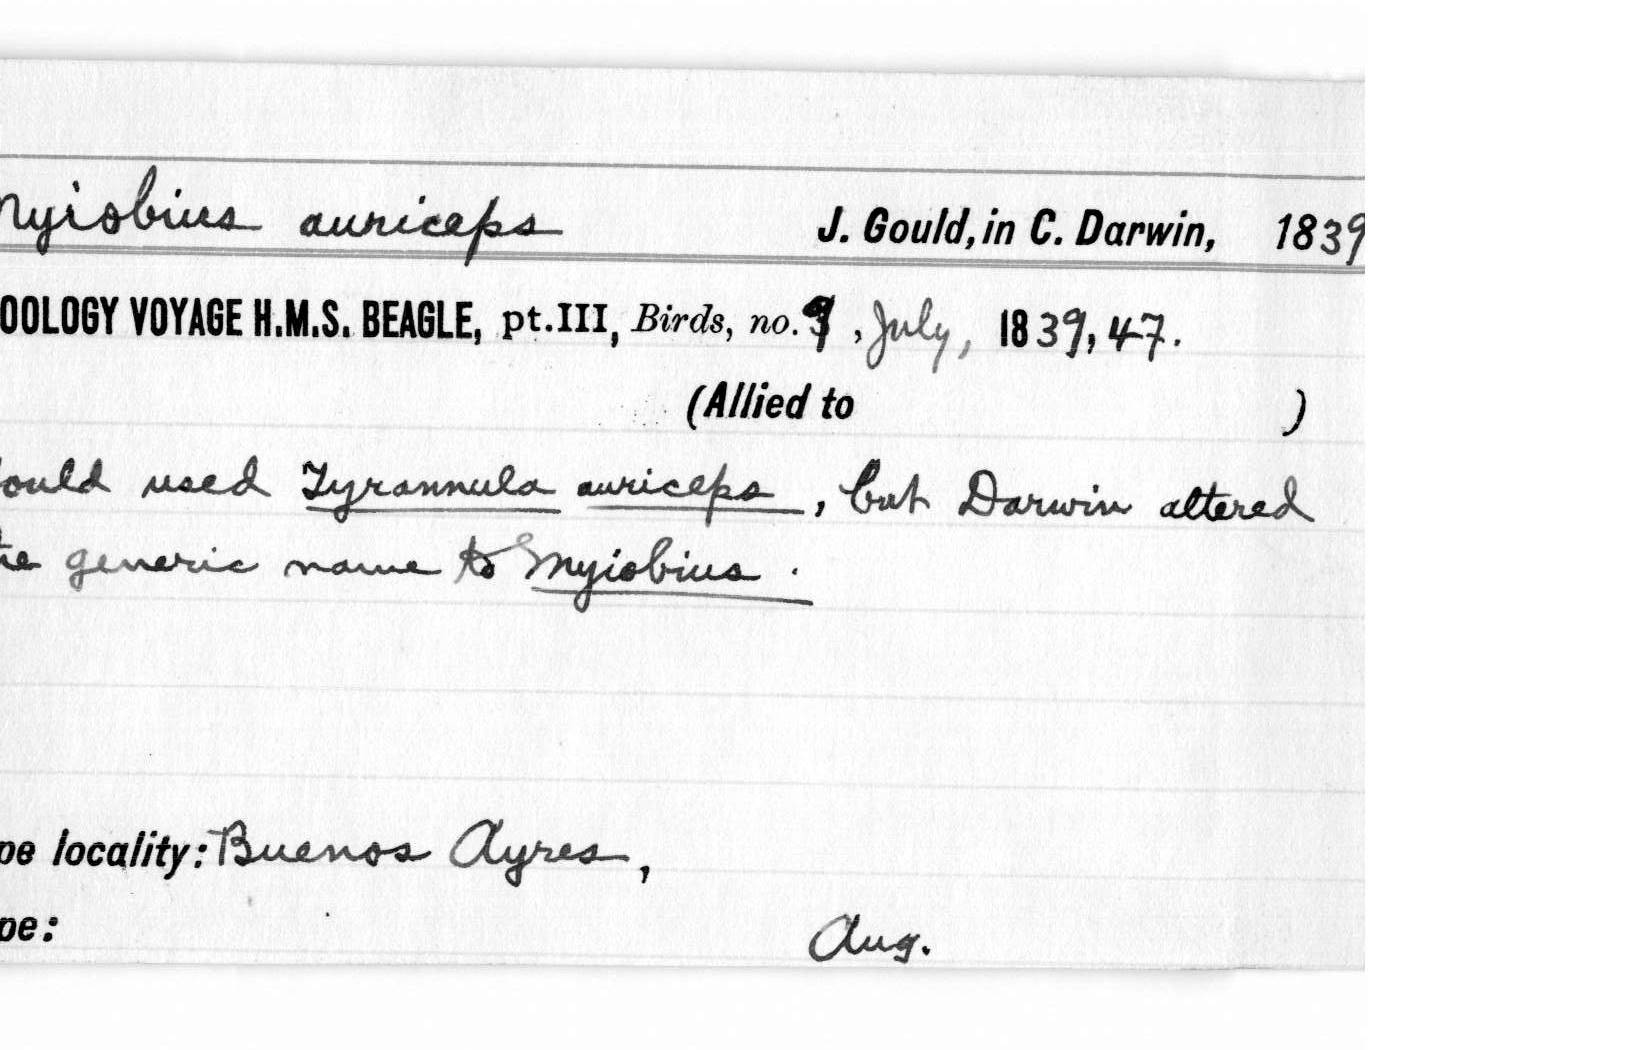 Myiobius auriceps J. Gould, in C. Darwin, 1839
OOLOGY VOYAGE H.M.S. BEAGLE, pt.III, Birds, no. 9, July, 1839, 47.
(Allied to )
ould used Tyrannula auriceps, but Darwin altered
he generic name to Myiobius.
pe locality: Buenos Ayres,
pe: Aug.